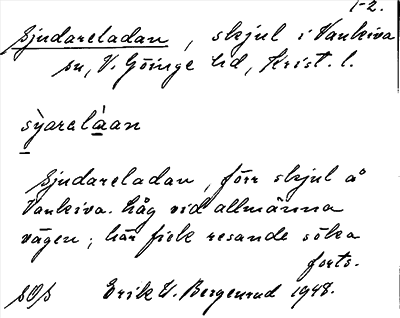 1-2.
Sjudareladan, skjul i Vankiva
sn, V. Göinge hd, Krist. l.
sỳarelàan
Sjudareladan, förr skjul å
Vankiva. Låg vid allmänna
vägen; här fick resande söka
forts.
SOS Erik W. Bergenrud 1948.